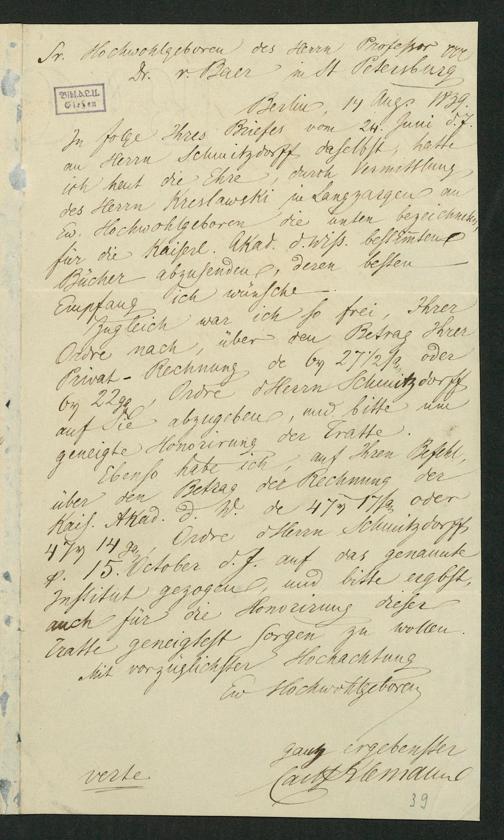 Sr. Hochwohlgeboren des Herrn Professor
Dr. v. Baer in St Petersburg
Bibl.d.L.U.
Gießen
Berlin, 14 Aug. 1839.
In folge Ihres Briefes vom 24. Juni d.J.
an Herrn Schmitzdorff daselbst, hatte
ich heut die Ehre, durch Vermittlung
des Herrn Kreslawski in Langzargen an
Ew. Hochwohlgeboren die unten bezeichneten,
für die Kaiserl. Akad. d. Wiss. bestimten
Bücher abzusenden, deren besten
Empfang ich wünsche.
Zugleich war ich so frei, Ihrer
Ordre nach, über den Betrag Ihrer
Privat-Rechnung de 27 1/2 oder
22 Ordre d Herrn Schmitzdorff
auf Sie abzugeben, und bitte um
geneigte Honorirung der Tratte.
Ebenso habe ich, auf Ihren Befehl,
über den Betrag der Rechnung der
Kais. Akad. d. W. de 47 17 1/2 oder
47 14 Ordre d Herrn Schmitzdorff
p. 15. October d. J. auf das genannte
Institut gezogen, und bitte ergbst.
auch für die Honorirung dieser
Tratte geneigtest sorgen zu wollen.
Mit vorzüglichster Hochachtung
Ew Hochwohlgeboren
ganz ergebenster
Carl Klemann
verte
39